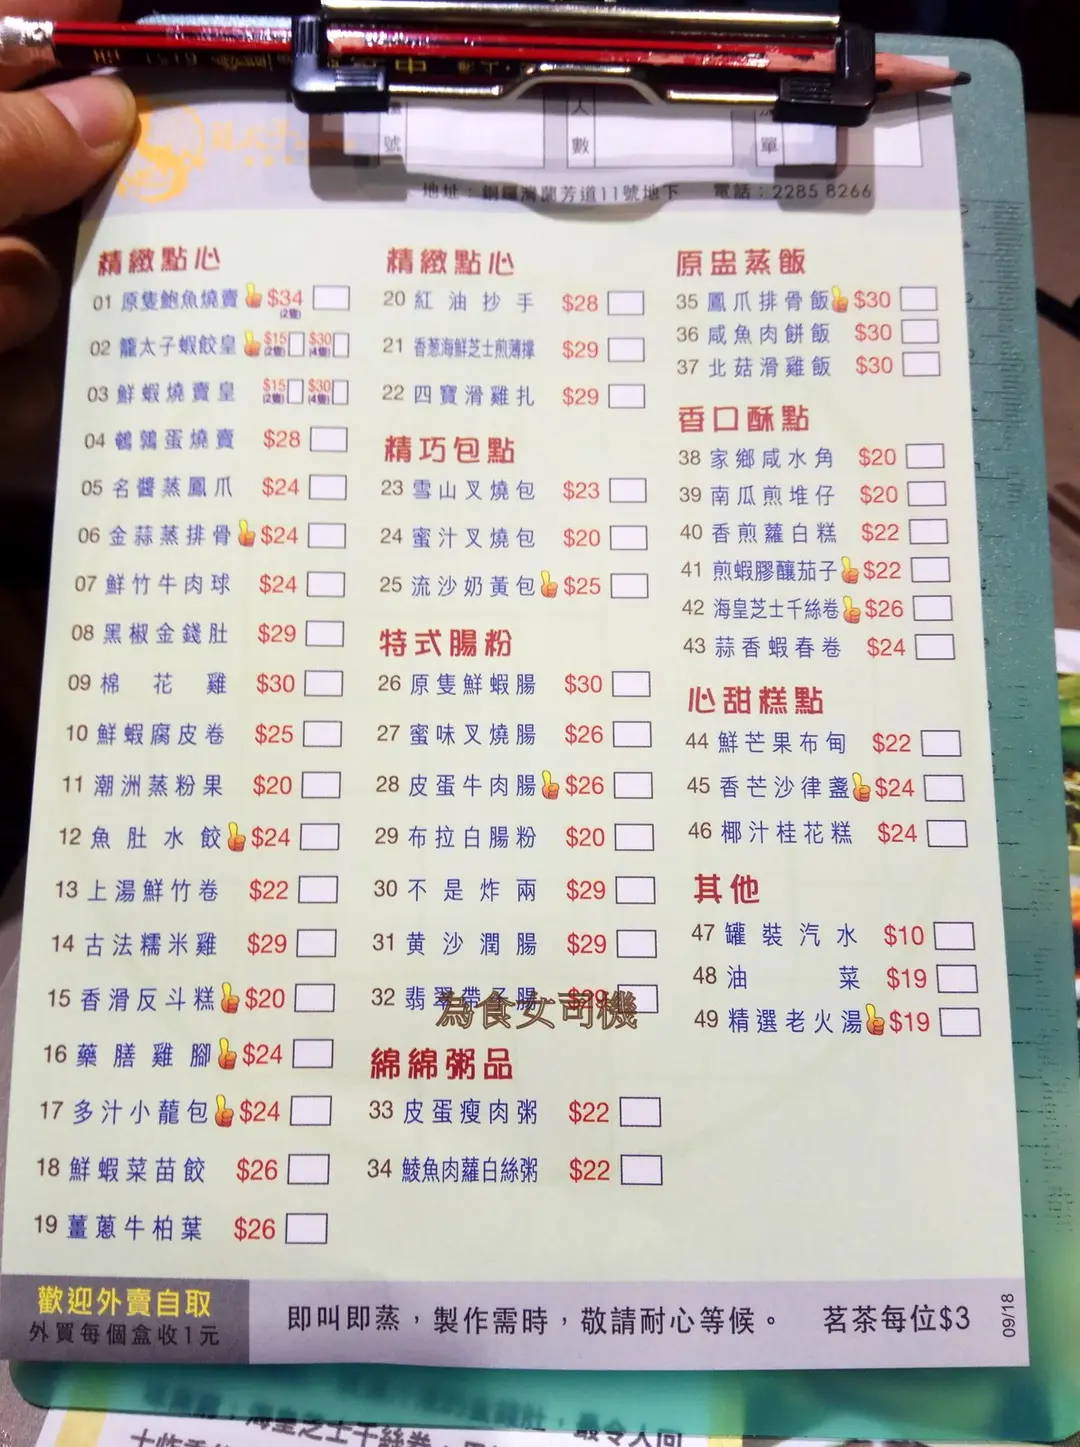 號
人數
單
地址：銅鑼灣蘭芳道11號地下 電話：2285 8266
精緻點心
01 原隻鮑魚燒賣 $34 (2隻)
02 籠太子蝦餃皇 $15 (2隻) $30 (4隻)
03 鮮蝦燒賣皇 $15 (2隻) $30 (4隻)
04 鵪鶉蛋燒賣 $28
05 名醬蒸鳳爪 $24
06 金蒜蒸排骨 $24
07 鮮竹牛肉球 $24
08 黑椒金錢肚 $29
09 棉花雞 $30
10 鮮蝦腐皮卷 $25
11 潮洲蒸粉果 $20
12 魚肚水餃 $24
13 上湯鮮竹卷 $22
14 古法糯米雞 $29
15 香滑反斗糕 $20
16 藥膳雞腳 $24
17 多汁小蘢包 $24
18 鮮蝦菜苗餃 $26
19 薑蔥牛柏葉 $26
精緻點心
20 紅油抄手 $28
21 香葱海鮮芝士煎薄撐 $29
22 四寶滑雞扎 $29
精巧包點
23 雪山叉燒包 $23
24 蜜汁叉燒包 $20
25 流沙奶黃包 $25
特式腸粉
26 原隻鮮蝦腸 $30
27 蜜味叉燒腸 $26
28 皮蛋牛肉腸 $26
29 布拉白腸粉 $20
30 不是炸兩 $29
31 黄沙潤腸 $29
32 翡翠帶子腸 $29
為食女司機
綿綿粥品
33 皮蛋瘦肉粥 $22
34 鯪魚肉蘿白絲粥 $22
原盅蒸飯
35 鳳爪排骨飯 $30
36 咸魚肉餅飯 $30
37 北菇滑雞飯 $30
香口酥點
38 家鄉咸水角 $20
39 南瓜煎堆仔 $20
40 香煎蘿白糕 $22
41 煎蝦膠釀茄子 $22
42 海皇芝士千絲卷 $26
43 蒜香蝦春卷 $24
心甜糕點
44 鮮芒果布甸 $22
45 香芒沙律盞 $24
46 椰汁桂花糕 $24
其他
47 罐裝汽水 $10
48 油菜 $19
49 精選老火湯 $19
歡迎外賣自取
外買每個盒收1元
即叫即蒸，製作需時，敬請耐心等候。 茗茶每位$3
09/18
海皇芝士千絲卷